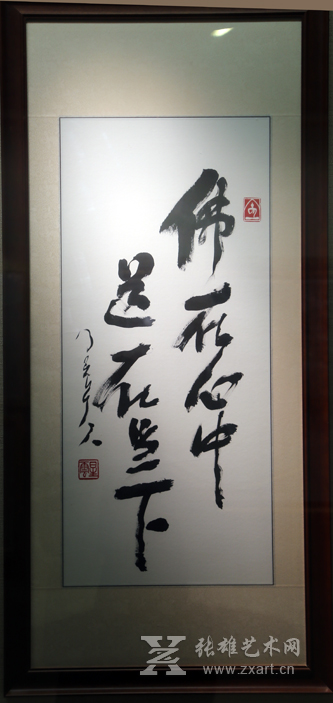 佛在心中
道在足下
张雄艺术网
www.zxart.cn